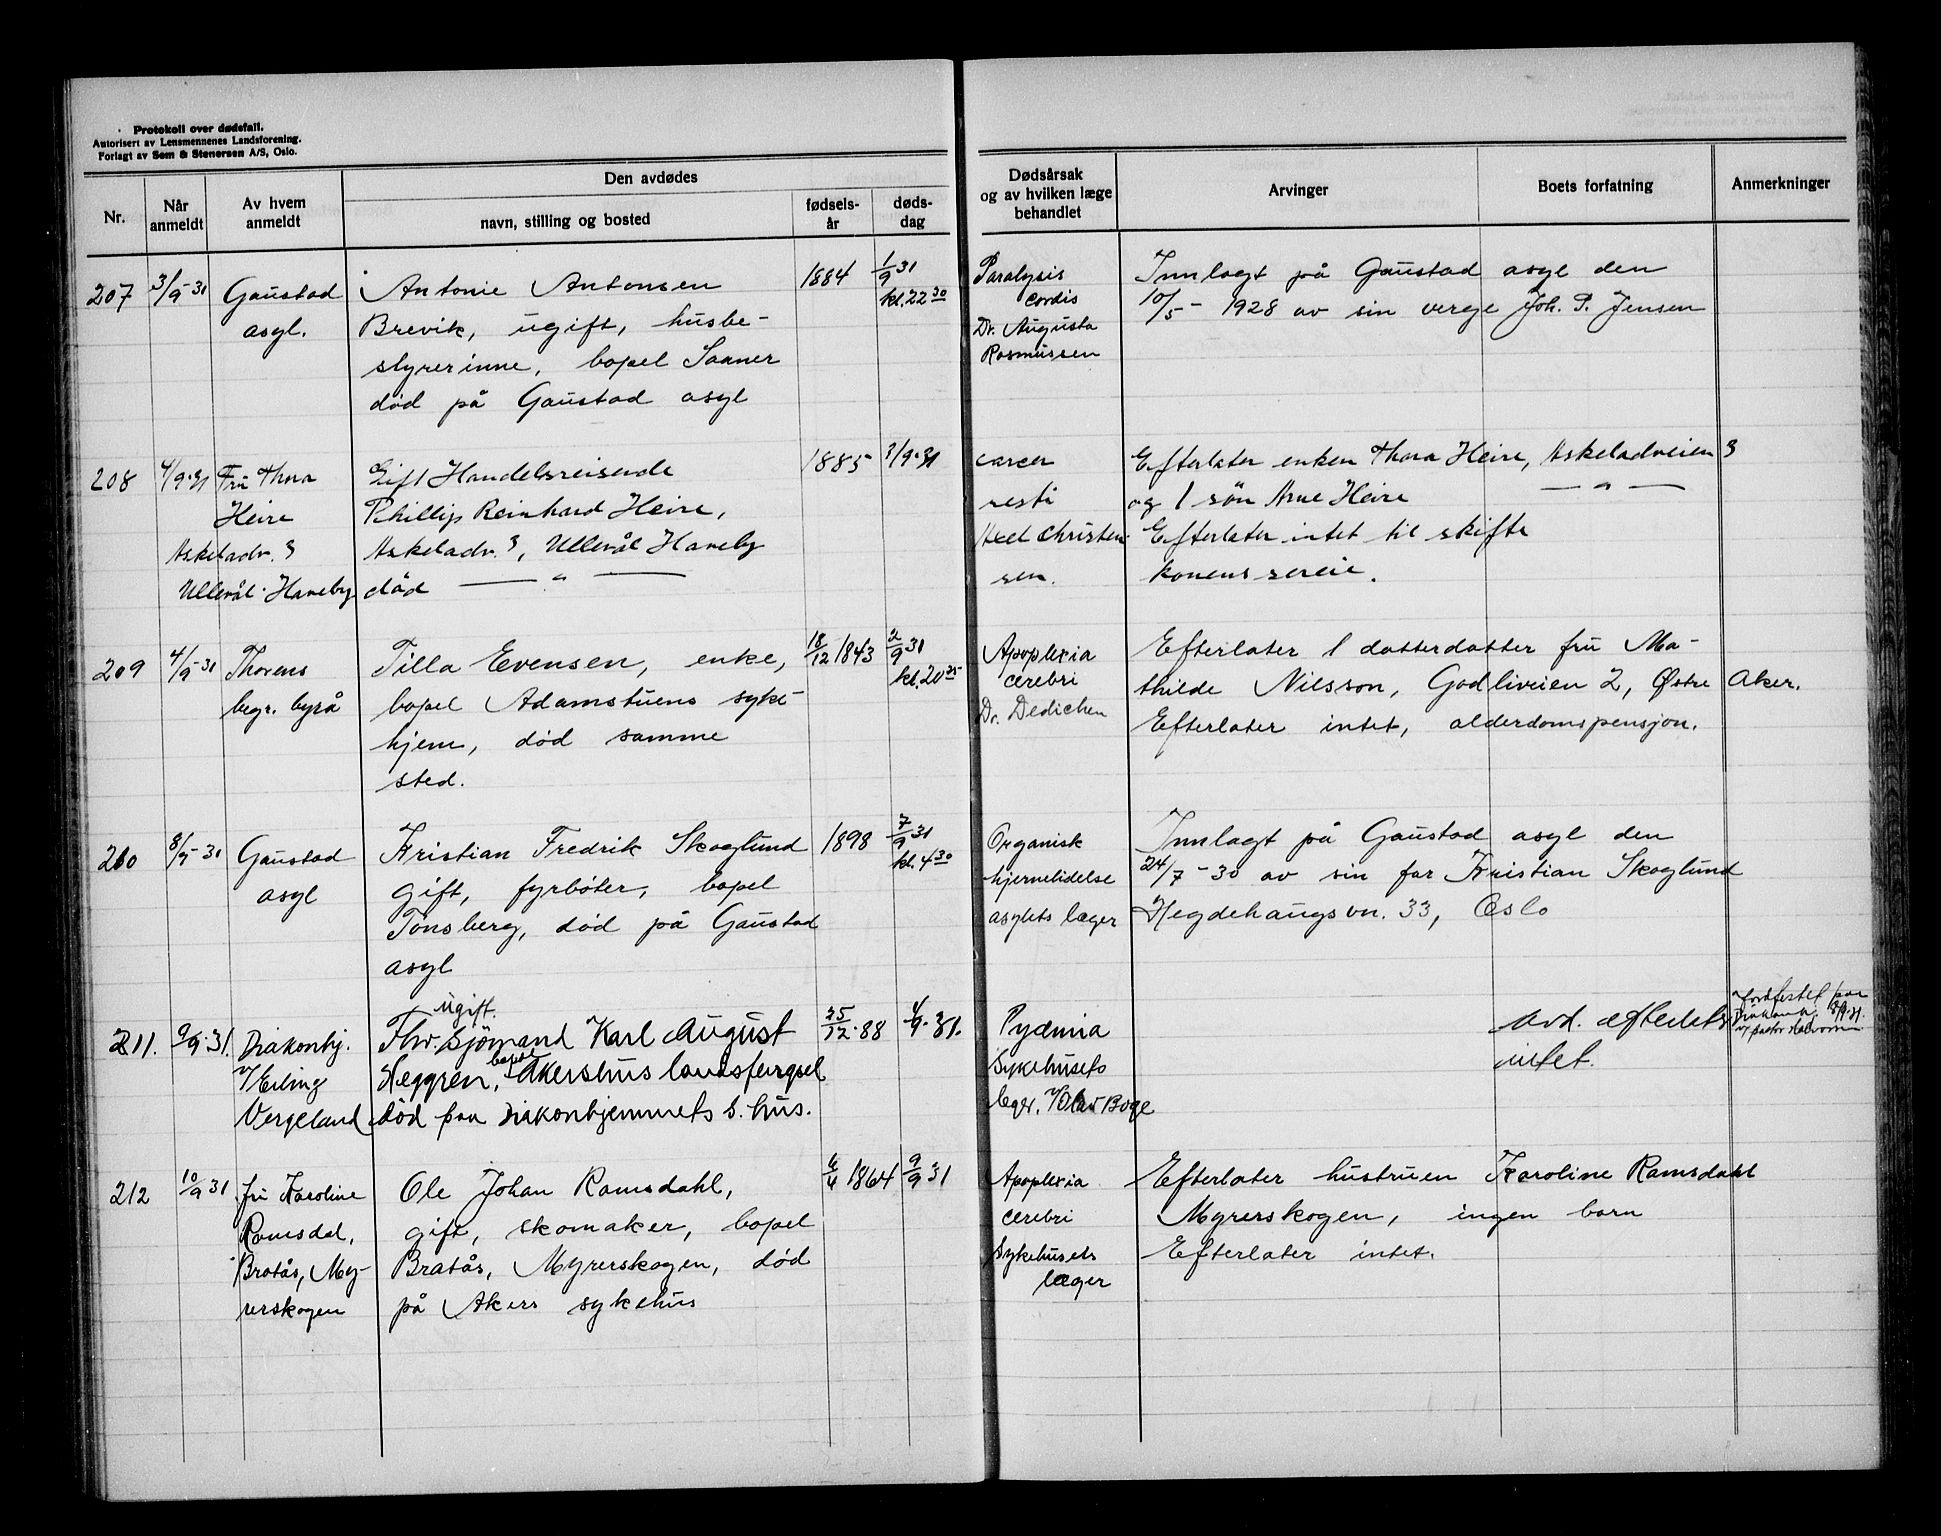 Protokoll over dødsfall.
Autorisert av Lensmennenes Landsforening.
Forlagt av Sem & Stenersen A/S, Oslo.
Nr.
Når anmeldt
Av hvem anmeldt
Den avdødes
navn, stilling og bosted
fødsels-år
døds-dag
Dødsårsak
og av hvilken læge
behandlet
Arvinger
Boets forfatning
Anmerkninger
207
3/9-31
Gaustad
asyl.
Antonie Antonsen
Brevik, ugift, husbe-
styrerinne, bopel Saaner
død på Gaustad asyl
1884
1/9 31
kl. 22 30
Paralysis
cordis
Dr. Augusta
Rasmussen
Innlagt på Gaustad asyl den
10/5 - 1928 av sin verge Joh. P. Jensen
208
4/9-31
Fru Thora
Heire
Askeladv. 3
Ullevål Haveby
Gift Handelsreisende
Phillip Reinhard Heire,
Askeladv. 3, Ullevål Haveby
død — " —
1885
3/9-31
cancer
resti
Axel Christen-
sen.
Efterlater enken Thora Heire, Askeladveien 3
og 1 sön Arne Heire — " —
Efterlater intet til skifte
konens sereie.
209
4/9-31
Thorens
begr. byrå
Tilla Evensen, enke,
bopel Adamstuens syke-
hjem, død samme
sted.
18/12 1843
2/9 31
kl. 20 35
Apoplexia
cerebri
Dr. Dedichen
Efterlater 1 datterdatter fru Ma-
thilde Nilsson, Godliveien 2, Østre Aker.
Efterlater intet, alderdomspensjon.
210
8/9-31
Gaustad
asyl
Kristian Fredrik Skoglund
gift, fyrbøter, bopel
Tønsberg, død på Gaustad
asyl
1898
7/9 31
kl. 4 30
Organisk
hjernelidelse
asylets læger
Innlagt på Gaustad asyl den
24/7 - 30 av sin far Kristian Skoglund
Hegdehaugsvn. 33, Oslo
211.
9/9.31.
Diakonhj.
v/Erling
Vergeland
ugift.
Fhv. sjömand Karl August
Heggren, bopæl Akershus landsfengsel
död paa Diakonhjemmets s. hus.
25/12.88
4/9.31.
Pyæmia
Sykehusets
læger, v/Olav Boge
Avd. efterlater
intet.
212
10/9 31
fru Karoline
Ramsdal,
Bratås, My-
rerskogen
Ole Johan Ramsdahl,
gift, skomaker, bopel
Bratås, Myrerskogen, død
på Akers sykehus
6/4 1864
9/9 31
Apoplexia
cerebri
Sykehusets
læger
Efterlater hustruen Karoline Ramsdahl
Myrerskogen, ingen barn
Efterlater intet.